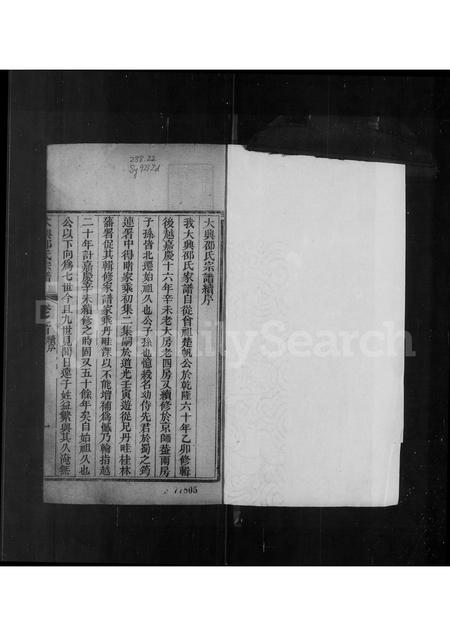 238.22
大興邵氏宗譜續序
我大興邵氏家譜自從曾祖楚帆公於乾隆六十年乙卯修輯
後越嘉慶十六年辛未老大房老四房又續修於京師蓋兩房
子孫皆北遷始祖久也公子孫也憶栽名幼侍先君於蜀之筠
連署中得睹家乘初集二集嗣於道光壬寅遊從兄丹畦桂林
藩署促其輯修家譜家乘丹畦以不能增補為憾乃輪指越
二十年計嘉慶辛未續修之時固又五十餘年矣自始祖久也
公以下向為七世今且九世見聞日遠子姓益繁與其久淹無
大興邵氏宗譜
續序
FamilySearch